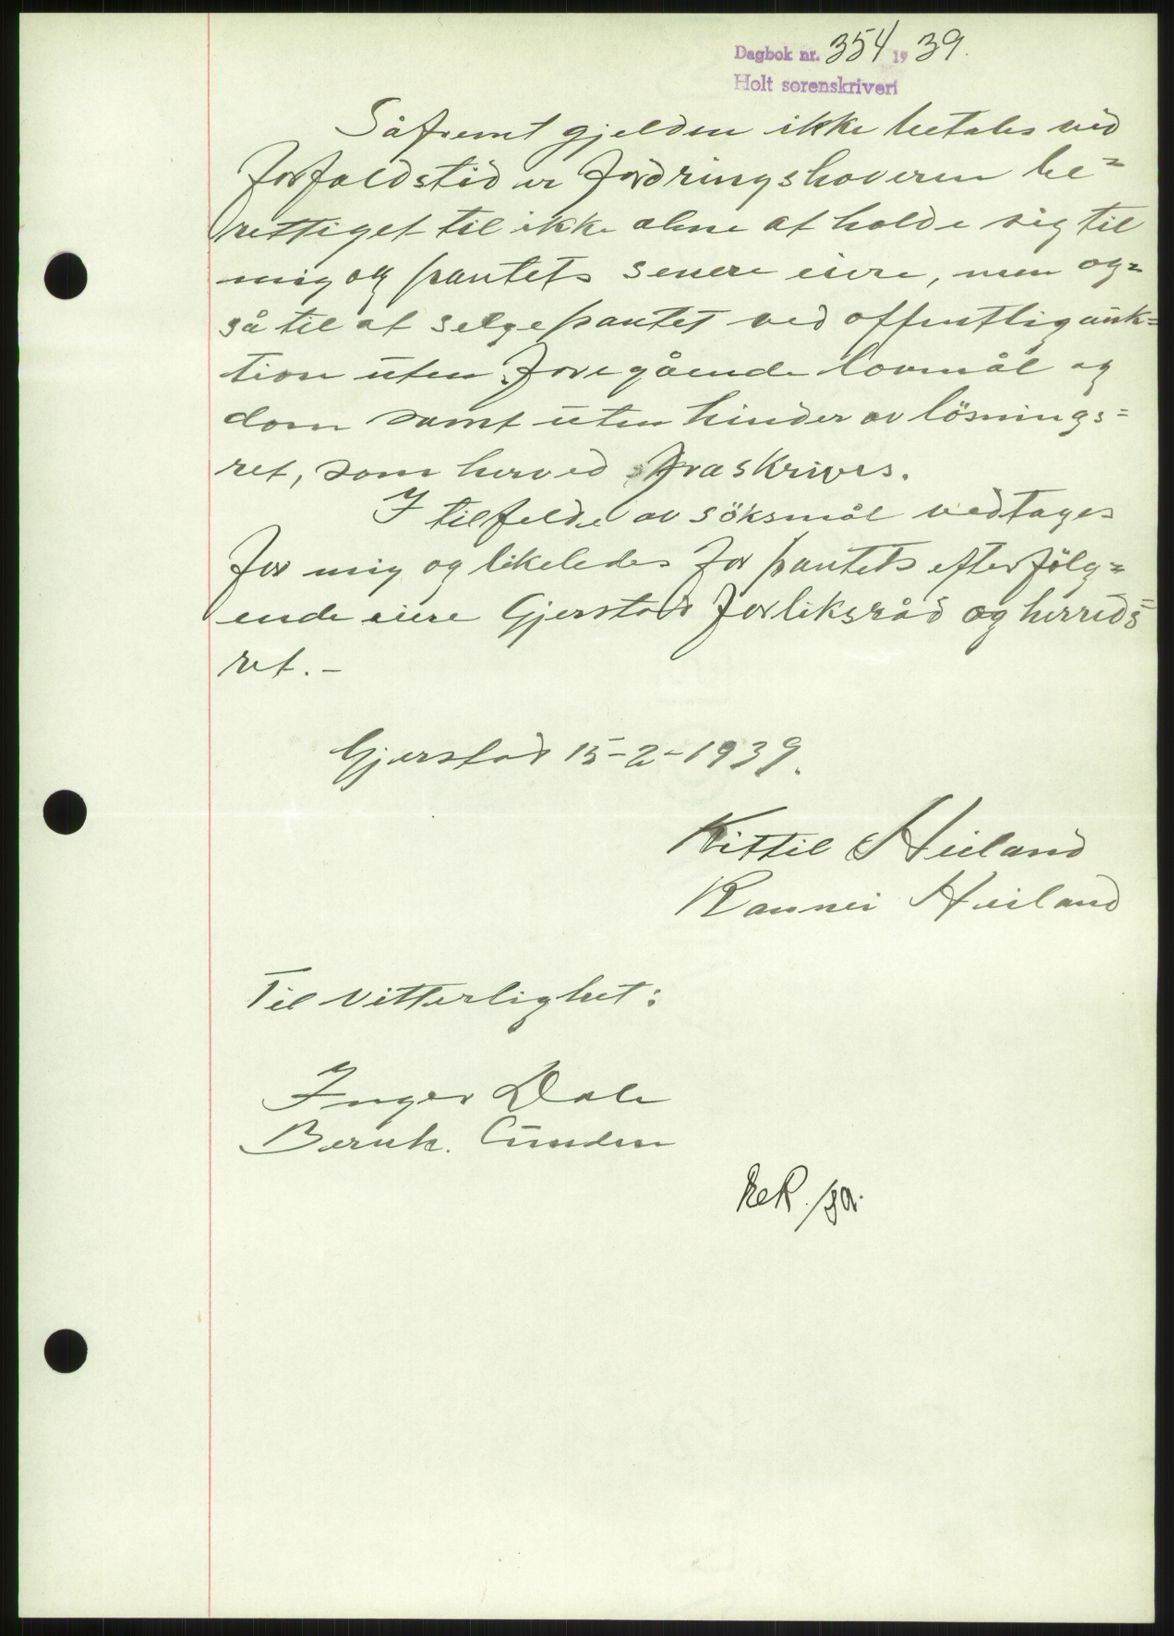 Dagbok nr. 354 1939.
Holt sorenskriveri
Såfremt gjelden ikke betales ved
forfaldstid er fordringshaveren be=
rettiget til ikke alene at holde sig til
mig og pantets senere eiere, men og=
så til at selge pantet ved offentlig auk=
tion uten foregående lovmål og
dom samt uten hinder av lösnings=
ret, som herved fraskrives.
I tilfelde av söksmål vedtages
for mig og likeledes for pantets efterfölg=
ende eiere Gjerstad forliksråd og herreds=
ret. -
Gjerstad 15-2-1939.
Kittil Heiland
Rannei Heiland
Til Vitterlighet:
Inger Dale
Bernh. Lunden